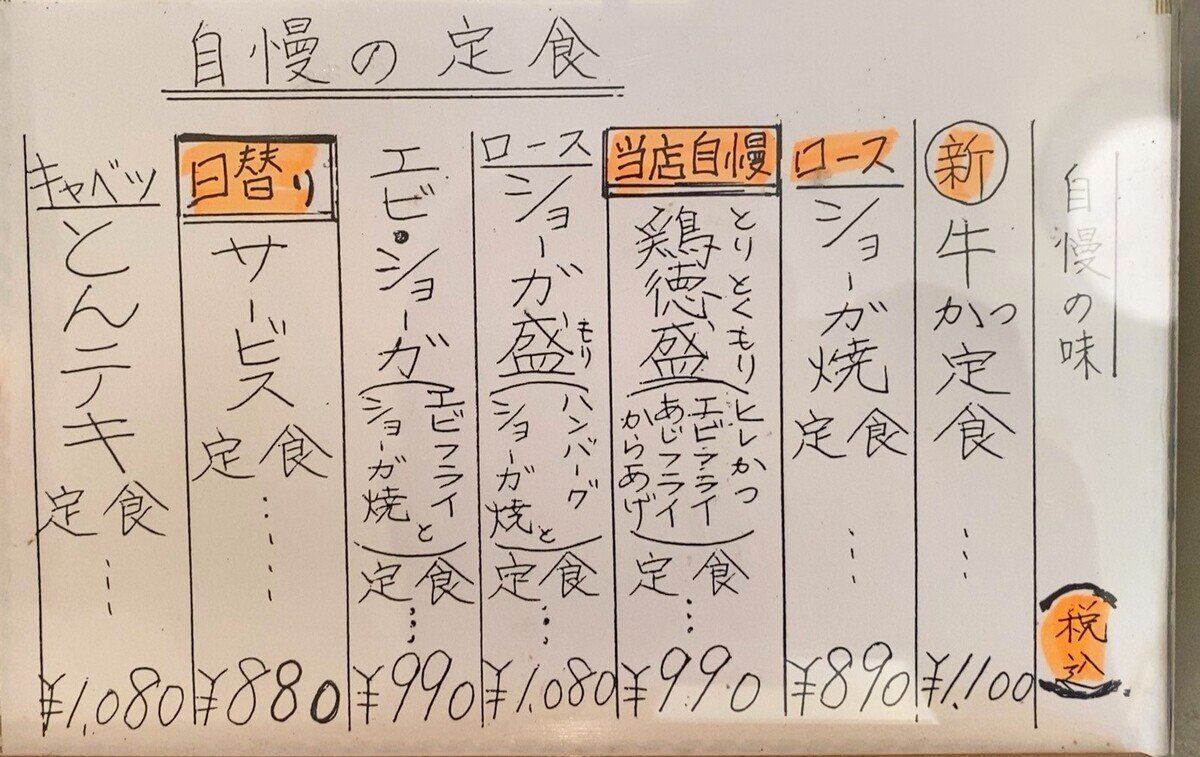 自慢の定食
自慢の味
税込
新
牛かつ定食
…
¥1,100
ロース
ショーガ焼
定食
…
¥890
当店自慢
鶏徳盛
とりとくもり
ヒレかつ
エビフライ
あじフライ
からあげ
定食
…
¥990
ロース
ショーガ盛
もり
ハンバーグと
ショーガ焼
定食
…
¥1,080
エビ・ショーガ
エビフライと
ショーガ焼
定食
…
¥990
日替り
サービス
定食
…
¥880
キャベツ
とんテキ
定食
…
¥1,080